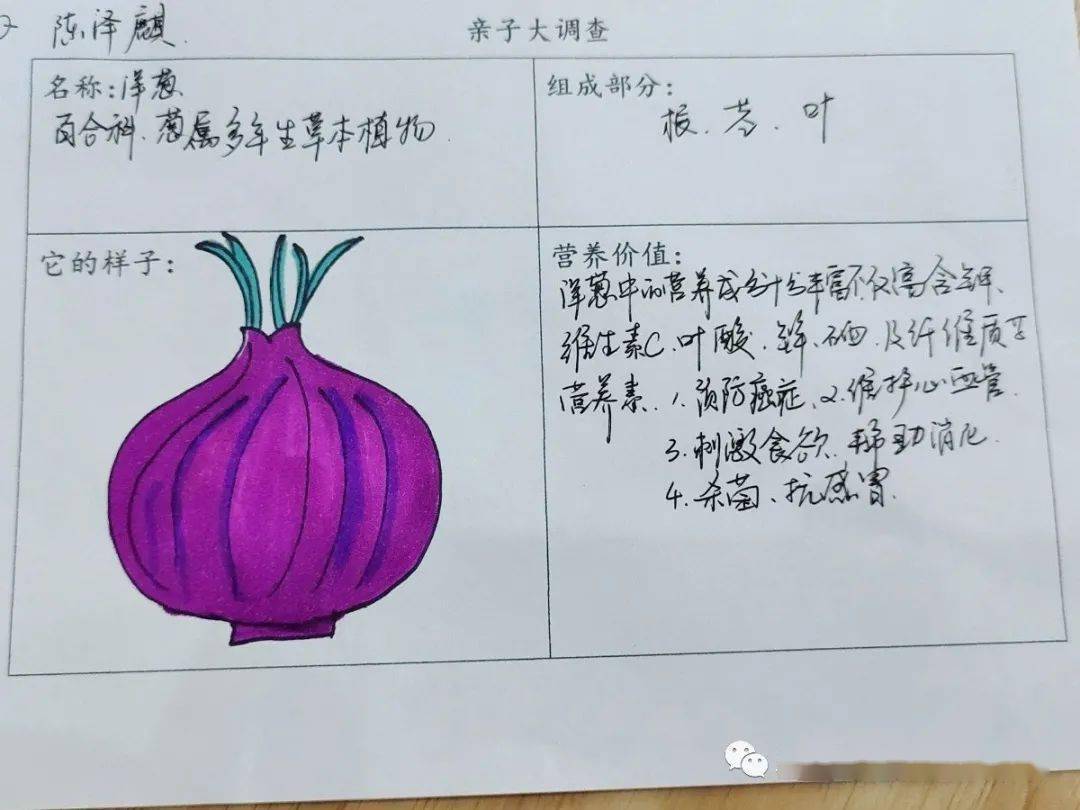 陈泽麒
亲子大调查
名称:洋葱
百合科、葱属多年生草本植物
组成部分:
根、茎、叶
它的样子:
营养价值:
洋葱中的营养成分十分丰富不仅富含钾、
维生素C、叶酸、锌、硒、及纤维质等
营养素. 1.预防癌症、2.维护心血管.
3.刺激食欲、帮助消化.
4.杀菌、抗感冒.